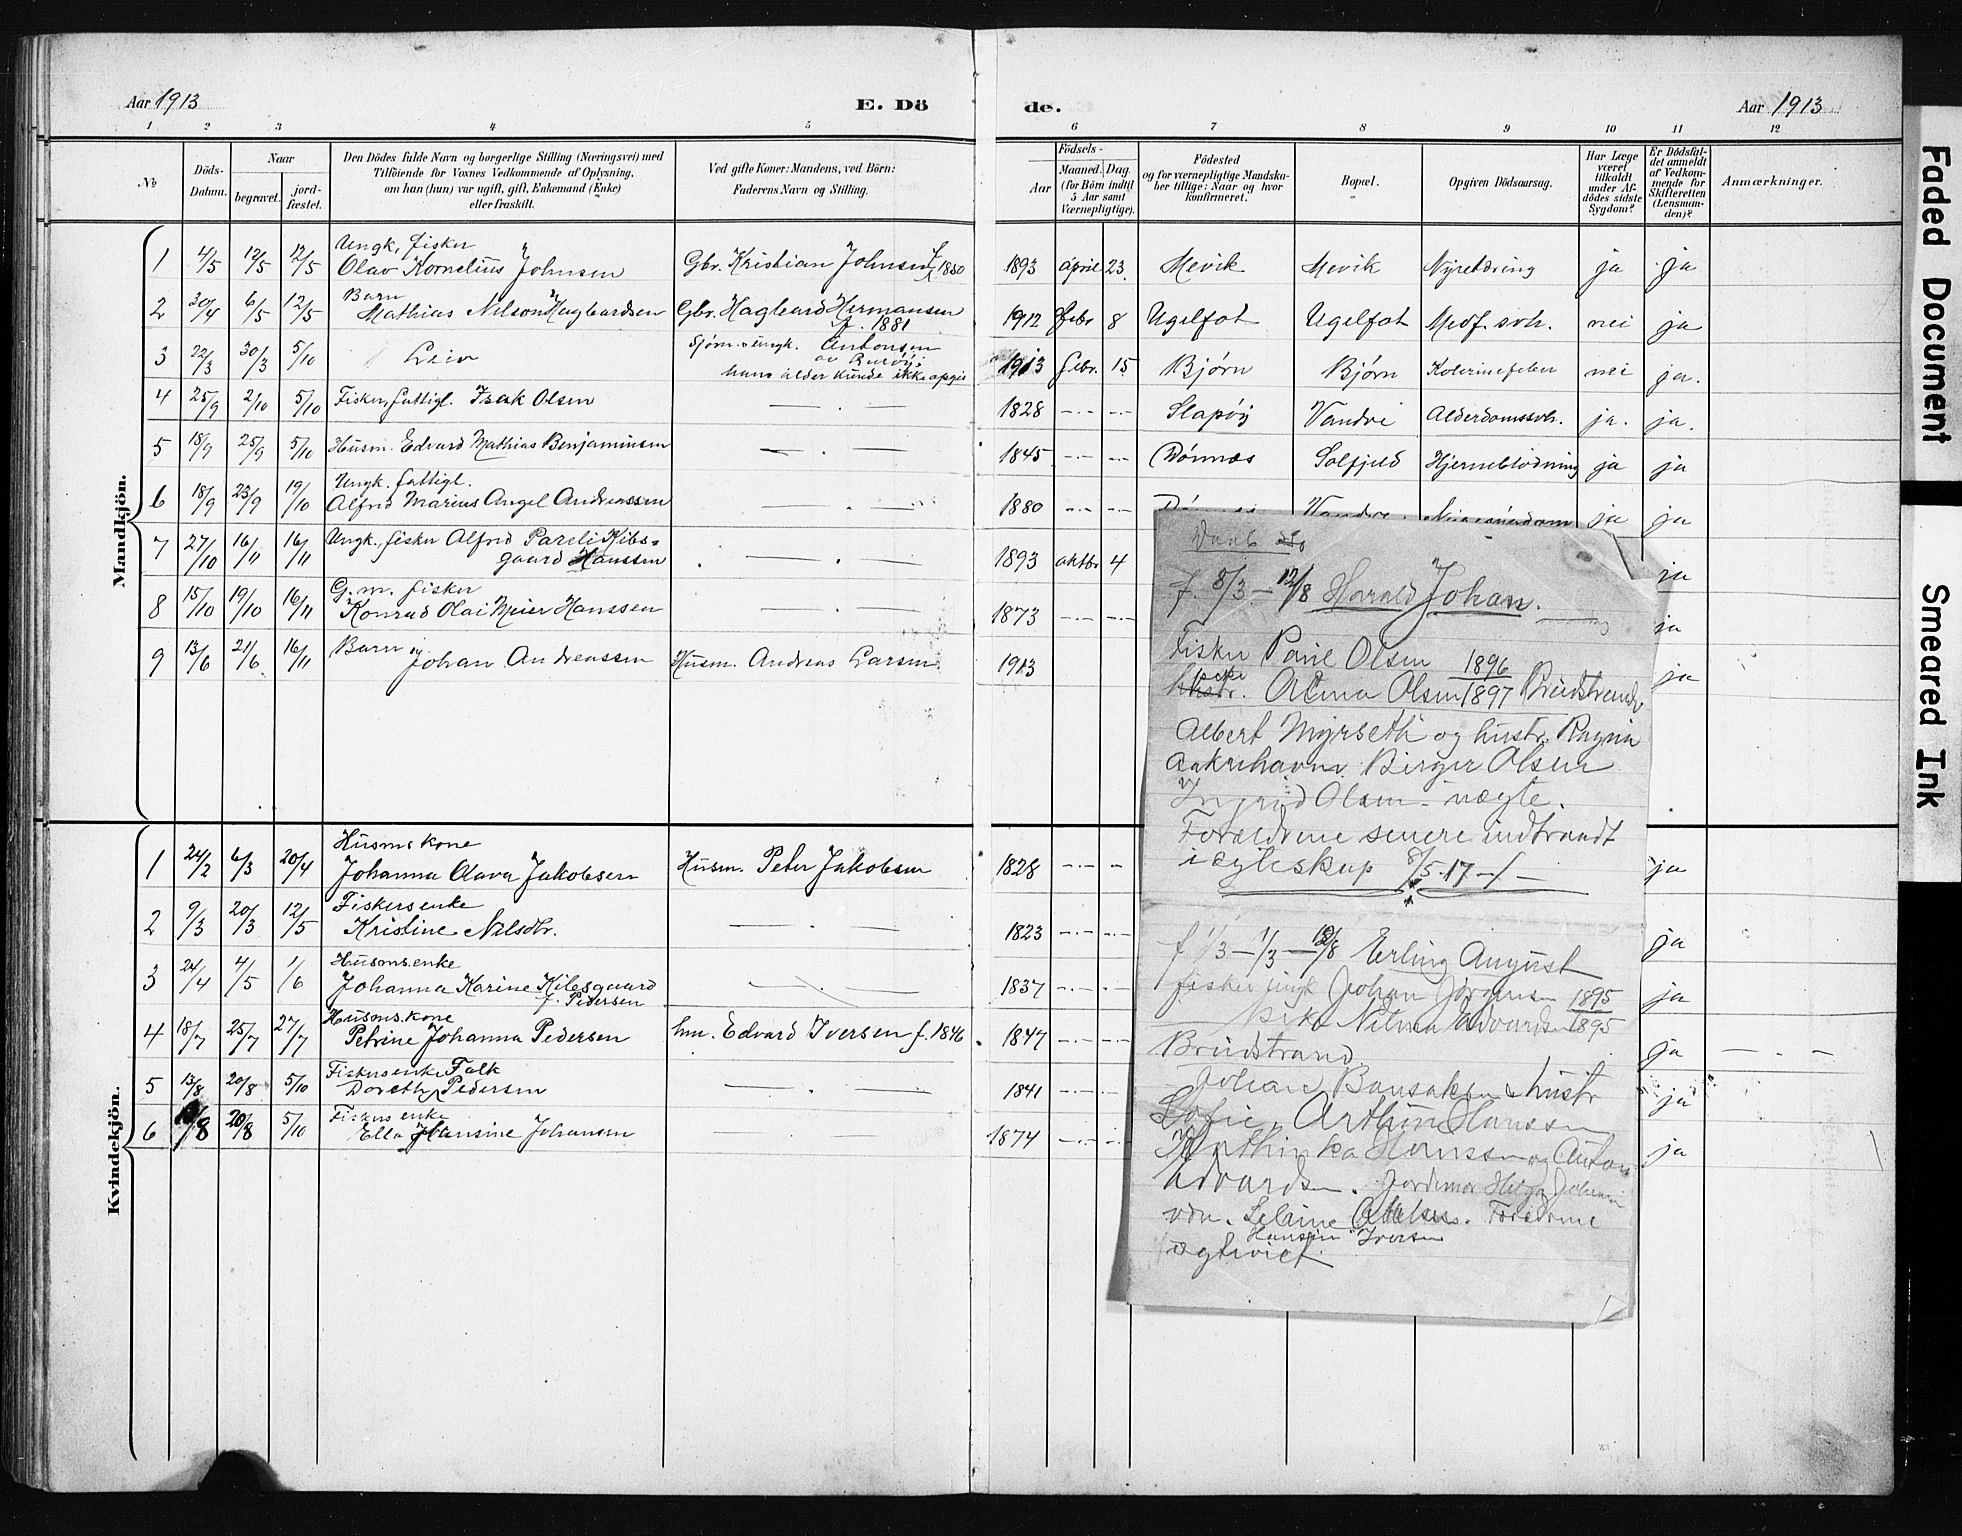 Aar 1913
E. Dö
de.
Aar 1913
1 2 3 4 5 6 7 8 9 10 11 12
No
Döds-Datum.
Naar
begravet.
jord-fæstet.
Den Dödes fulde Navn og borgerlige Stilling (Næringsvei) med
Tilföiende for Voxnes Vedkommende af Oplysning,
om han (hun) var ugift, gift, Enkemand (Enke)
eller fraskilt.
Ved gifte Koner: Mandens, ved Börn:
Faderens Navn og Stilling.
Födsels-
Aar
Maaned. Dag.
(for Börn indtil
5 Aar samt
Værnepligtige).
Födested
og for værnepligtige Mandska-
ber tillige: Naar og hvor
konfirmeret.
Bopæl.
Opgiven Dödsaarsag.
Har Læge
været
tilkaldt
under Af-
dödes sidste
Sygdom?
Er Dödsfal-
det anmeldt
af Vedkom-
mende for
Skifteretten
(Lensman-
den)?
Anmærkninger.
Mandkjön.
1 4/5 12/5 12/5 Ungk. fisker
Olav Kornelius Johnsen Gbr. Kristian Johnsen f. 1850 1893 april 23. Mevik Mevik Nyretæring ja ja
2 30/4 6/5 12/5 Barn
Mathias Nilson Hagbardsen Gbr. Hagbard Hermansen
f. 1881 1912 Febr 8 Ugelfot Ugelfot Medf. svh. nei ja
3 22/3 30/3 5/10 Leiv Sjøm. ungk. Antonsen
hans alder kunde ikke opgis 1913 febr. 15 Bjørn Bjørn nei ja.
4 25/9 2/10 5/10 Fisker, fattigl. Isak Olsen — . — 1828 —.— —.— Slapøy Vandve Alderdomssvh. ja. ja.
5 18/9 25/9 5/10 Husm. Edvard Mathias Benjaminsen — . — 1845 —.— —.— Dønnæs Solfjeld Hjerneblødning ja ja
6 18/9 23/9 19/10 Ungk. fattigl.
Alfred Marius Angel Andreassen — . — 1880 —.— —.— ja ja
7 27/10 16/11 16/11 Ungk., fisker Alfred Pareli Kibs-
gaard Hanssen . — . — 1893 oktbr 4 ja
8 15/10 19/10 16/11 G.m. fisker
Konrad Olai Meier Hanssen — . — 1873 —.— —.— ja
9 13/6 21/6 16/11 Barn
Johan Andreassen Husm. Andreas Larsen 1913 ja
Kvindekjön.
1 24/2 6/3 20/4 Husmskone
Johanna Olava Jakobsen Husm. Peter Jakobsen 1828 —.— — ja
2 9/3 20/3 12/5 Fiskersenke
Kristine Nilsdtr. — . — 1823 —.— —.— ja
3 24/4 4/5 1/6 Husmsenke
Johanna Karine Kibsgaard
f. Pedersen — . — 1837 —.— —.— ja
4 18/7 25/7 27/7 Husmskone
Petrine Johanna Pedersen hm. Edvard Iversen f. 1846 1847 —.— —.— ja — . —
5 13/8 20/8 5/10 Fiskersenke Falk
Doreth Pedersen — . — 1841 —.— —.— ja
6 20/8 5/10 Fiskers enke
Ella Hansine Johansen — . — 1874 —.— —.— ja
Daab
f. 8/3 — 12/8 Harald Johan.
Fisker Paul Olsen 1896
pike Alma Olsen 1897 Breidstrand
Albert Myrseth og hustr. Ragna
Aakrehavn Birger Olsen
Ingrid Olsen - uægte.
Forældrene senere indtraadt
i ægteskap 8/5.17 —/—
f 1/3 — 1/3 — 12/8 Erling August
fisker ungk Johan Jørgensen 1895
pike Nilma Edvardsen 1895
Breidstrand.
Johan Bansaksen hustr
Sofie, Arthur Hanssen
Kathinka Hanssen og Anton
Edvardsen. Jordmor Helga Johansen
Forældrene
Hansine Iversen
ægteviet.
Faded Document
Smeared Ink